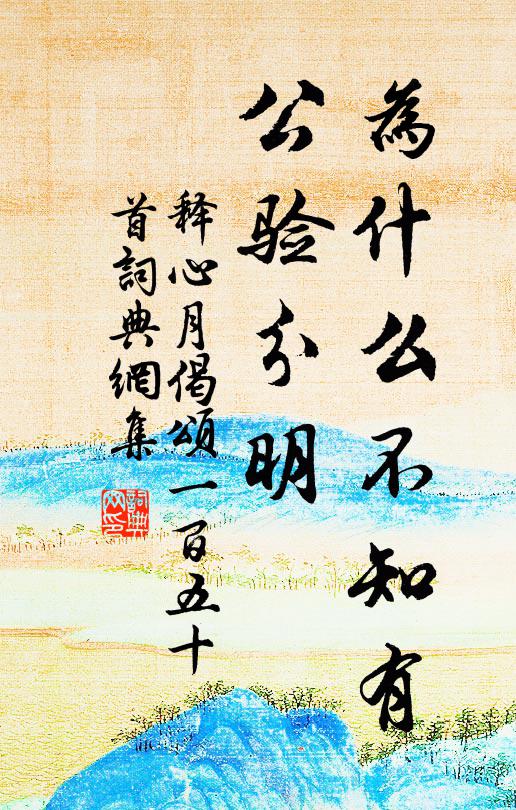 為什么不知有
公验分明
释心月偈頌一百五十
首詞典網集
詞典